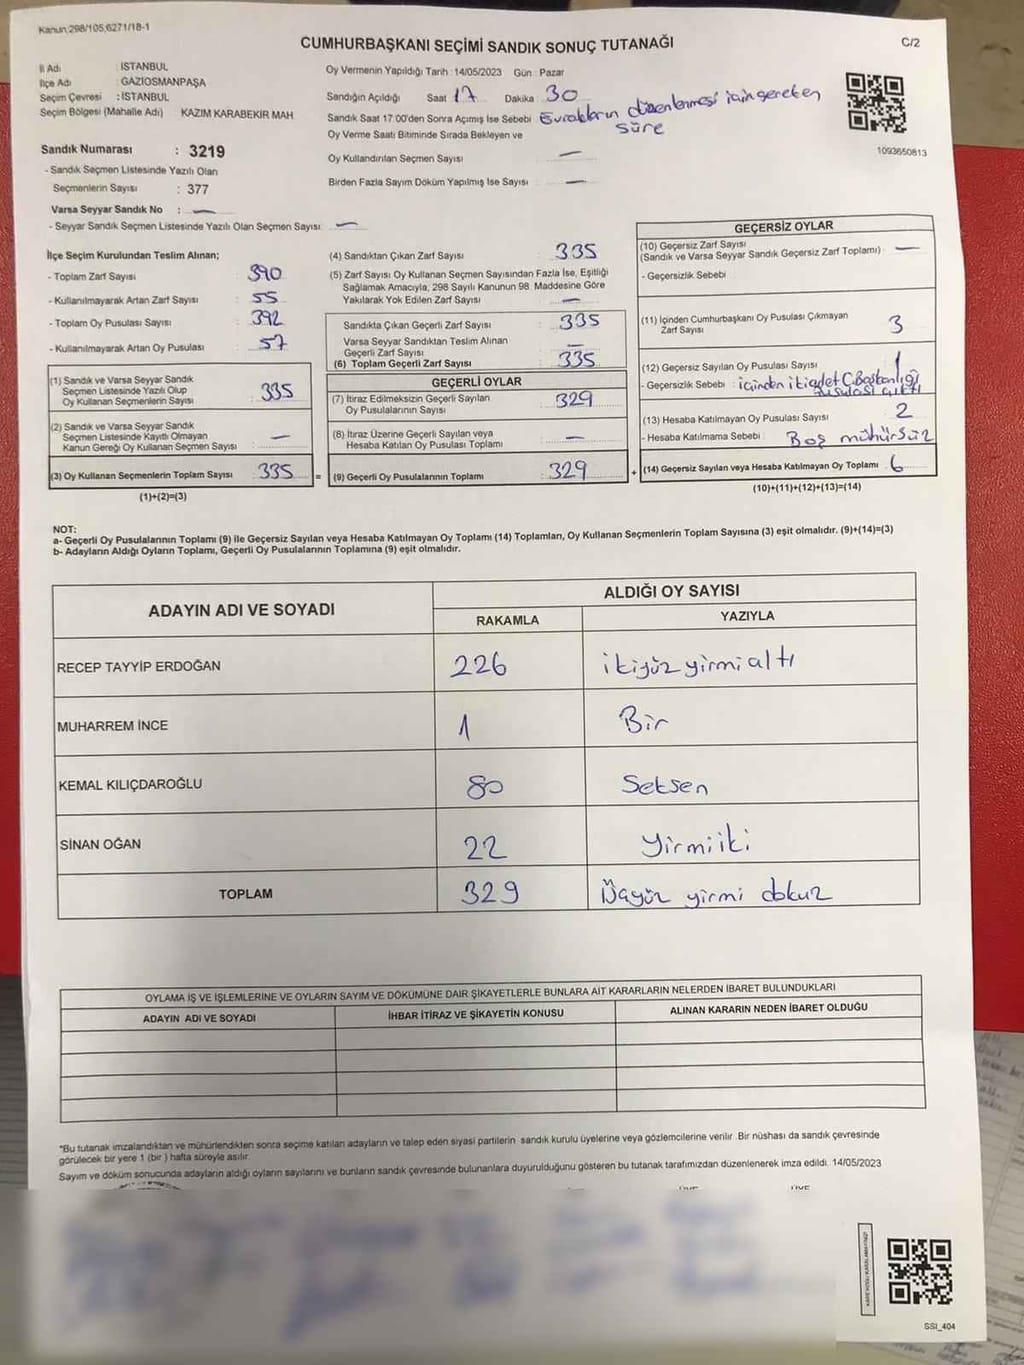 Kanun,298/105,6271/18-1
CUMHURBAŞKANI SEÇİMİ SANDIK SONUÇ TUTANAĞI
C/2
İl Adı : İSTANBUL
İlçe Adı : GAZİOSMANPAŞA
Seçim Çevresi : İSTANBUL
Seçim Bölgesi (Mahalle Adı) KAZIM KARABEKİR MAH
Sandık Numarası : 3219
- Sandık Seçmen Listesinde Yazılı Olan
Seçmenlerin Sayısı : 377
Varsa Seyyar Sandık No : —
- Seyyar Sandık Seçmen Listesinde Yazılı Olan Seçmen Sayısı: —
Oy Vermenin Yapıldığı Tarih : 14/05/2023 Gün : Pazar
Sandığın Açıldığı Saat 17 Dakika : 30
Sandık Saat 17:00'den Sonra Açımış İse Sebebi : Evrakların düzenlenmesi için gereken
süre
Oy Verme Saati Bitiminde Sırada Bekleyen ve
Oy Kullandırılan Seçmen Sayısı : —
Birden Fazla Sayım Döküm Yapılmış İse Sayısı : —
1093650813
İlçe Seçim Kurulundan Teslim Alınan;
- Toplam Zarf Sayısı : 390
- Kullanılmayarak Artan Zarf Sayısı : 55
- Toplam Oy Pusulası Sayısı : 392
- Kullanılmayarak Artan Oy Pusulası : 57
(1) Sandık ve Varsa Seyyar Sandık
Seçmen Listesinde Yazılı Olup
Oy Kullanan Seçmenlerin Sayısı : 335
(2) Sandık ve Varsa Seyyar Sandık
Seçmen Listesinde Kayıtlı Olmayan
Kanun Gereği Oy Kullanan Seçmen Sayısı : —
(3) Oy Kullanan Seçmenlerin Toplam Sayısı : 335 =
(1)+(2)=(3)
(4) Sandıktan Çıkan Zarf Sayısı : 335
(5) Zarf Sayısı Oy Kullanan Seçmen Sayısından Fazla İse, Eşitliği
Sağlamak Amacıyla, 298 Sayılı Kanunun 98. Maddesine Göre
Yakılarak Yok Edilen Zarf Sayısı : —
Sandıkta Çıkan Geçerli Zarf Sayısı : 335
Varsa Seyyar Sandıktan Teslim Alınan
Geçerli Zarf Sayısı : —
(6) Toplam Geçerli Zarf Sayısı : 335
GEÇERLİ OYLAR
(7) İtiraz Edilmeksizin Geçerli Sayılan
Oy Pusulalarının Sayısı : 329
(8) İtiraz Üzerine Geçerli Sayılan veya
Hesaba Katılan Oy Pusulası Toplamı : —
(9) Geçerli Oy Pusulalarının Toplamı : 329 +
GEÇERSİZ OYLAR
(10) Geçersiz Zarf Sayısı
(Sandık ve Varsa Seyyar Sandık Geçersiz Zarf Toplamı) : —
- Geçersizlik Sebebi :
(11) İçinden Cumhurbaşkanı Oy Pusulası Çıkmayan
Zarf Sayısı 3
(12) Geçersiz Sayılan Oy Pusulası Sayısı : 1
- Geçersizlik Sebebi : içinden iki adet C.Başkanlığı
pusulası çıktı
(13) Hesaba Katılmayan Oy Pusulası Sayısı : 2
- Hesaba Katılmama Sebebi : Boş mühürsüz
(14) Geçersiz Sayılan veya Hesaba Katılmayan Oy Toplamı : 6
(10)+(11)+(12)+(13)=(14)
NOT:
a- Geçerli Oy Pusulalarının Toplamı (9) ile Geçersiz Sayılan veya Hesaba Katılmayan Oy Toplamı (14) Toplamları, Oy Kullanan Seçmenlerin Toplam Sayısına (3) eşit olmalıdır. (9)+(14)=(3)
b- Adayların Aldığı Oyların Toplamı, Geçerli Oy Pusulalarının Toplamına (9) eşit olmalıdır.
ADAYIN ADI VE SOYADI
ALDIĞI OY SAYISI
RAKAMLA YAZIYLA
RECEP TAYYİP ERDOĞAN 226 ikiyüz yirmi altı
MUHARREM İNCE 1 Bir
KEMAL KILIÇDAROĞLU 80 Seksen
SİNAN OĞAN 22 Yirmi iki
TOPLAM 329 Üçyüz yirmi dokuz
OYLAMA İŞ VE İŞLEMLERİNE VE OYLARIN SAYIM VE DÖKÜMÜNE DAİR ŞİKAYETLERLE BUNLARA AİT KARARLARIN NELERDEN İBARET BULUNDUKLARI
ADAYIN ADI VE SOYADI İHBAR İTİRAZ VE ŞİKAYETİN KONUSU ALINAN KARARIN NEDEN İBARET OLDUĞU
*Bu tutanak imzalandıktan ve mühürlendikten sonra seçime katılan adayların ve talep eden siyasi partilerin sandık kurulu üyelerine veya gözlemcilerine verilir. Bir nüshası da sandık çevresinde
görülecek bir yere 1 (bir ) hafta süreyle asılır.
Sayım ve döküm sonucunda adayların aldığı oyların sayılarını ve bunların sandık çevresinde bulunanlara duyurulduğunu gösteren bu tutanak tarafımızdan düzenlenerek imza edildi. 14/05/2023
ÜYE ÜYE
KARE KODU KARALAMAYINIZ!
SSI_404